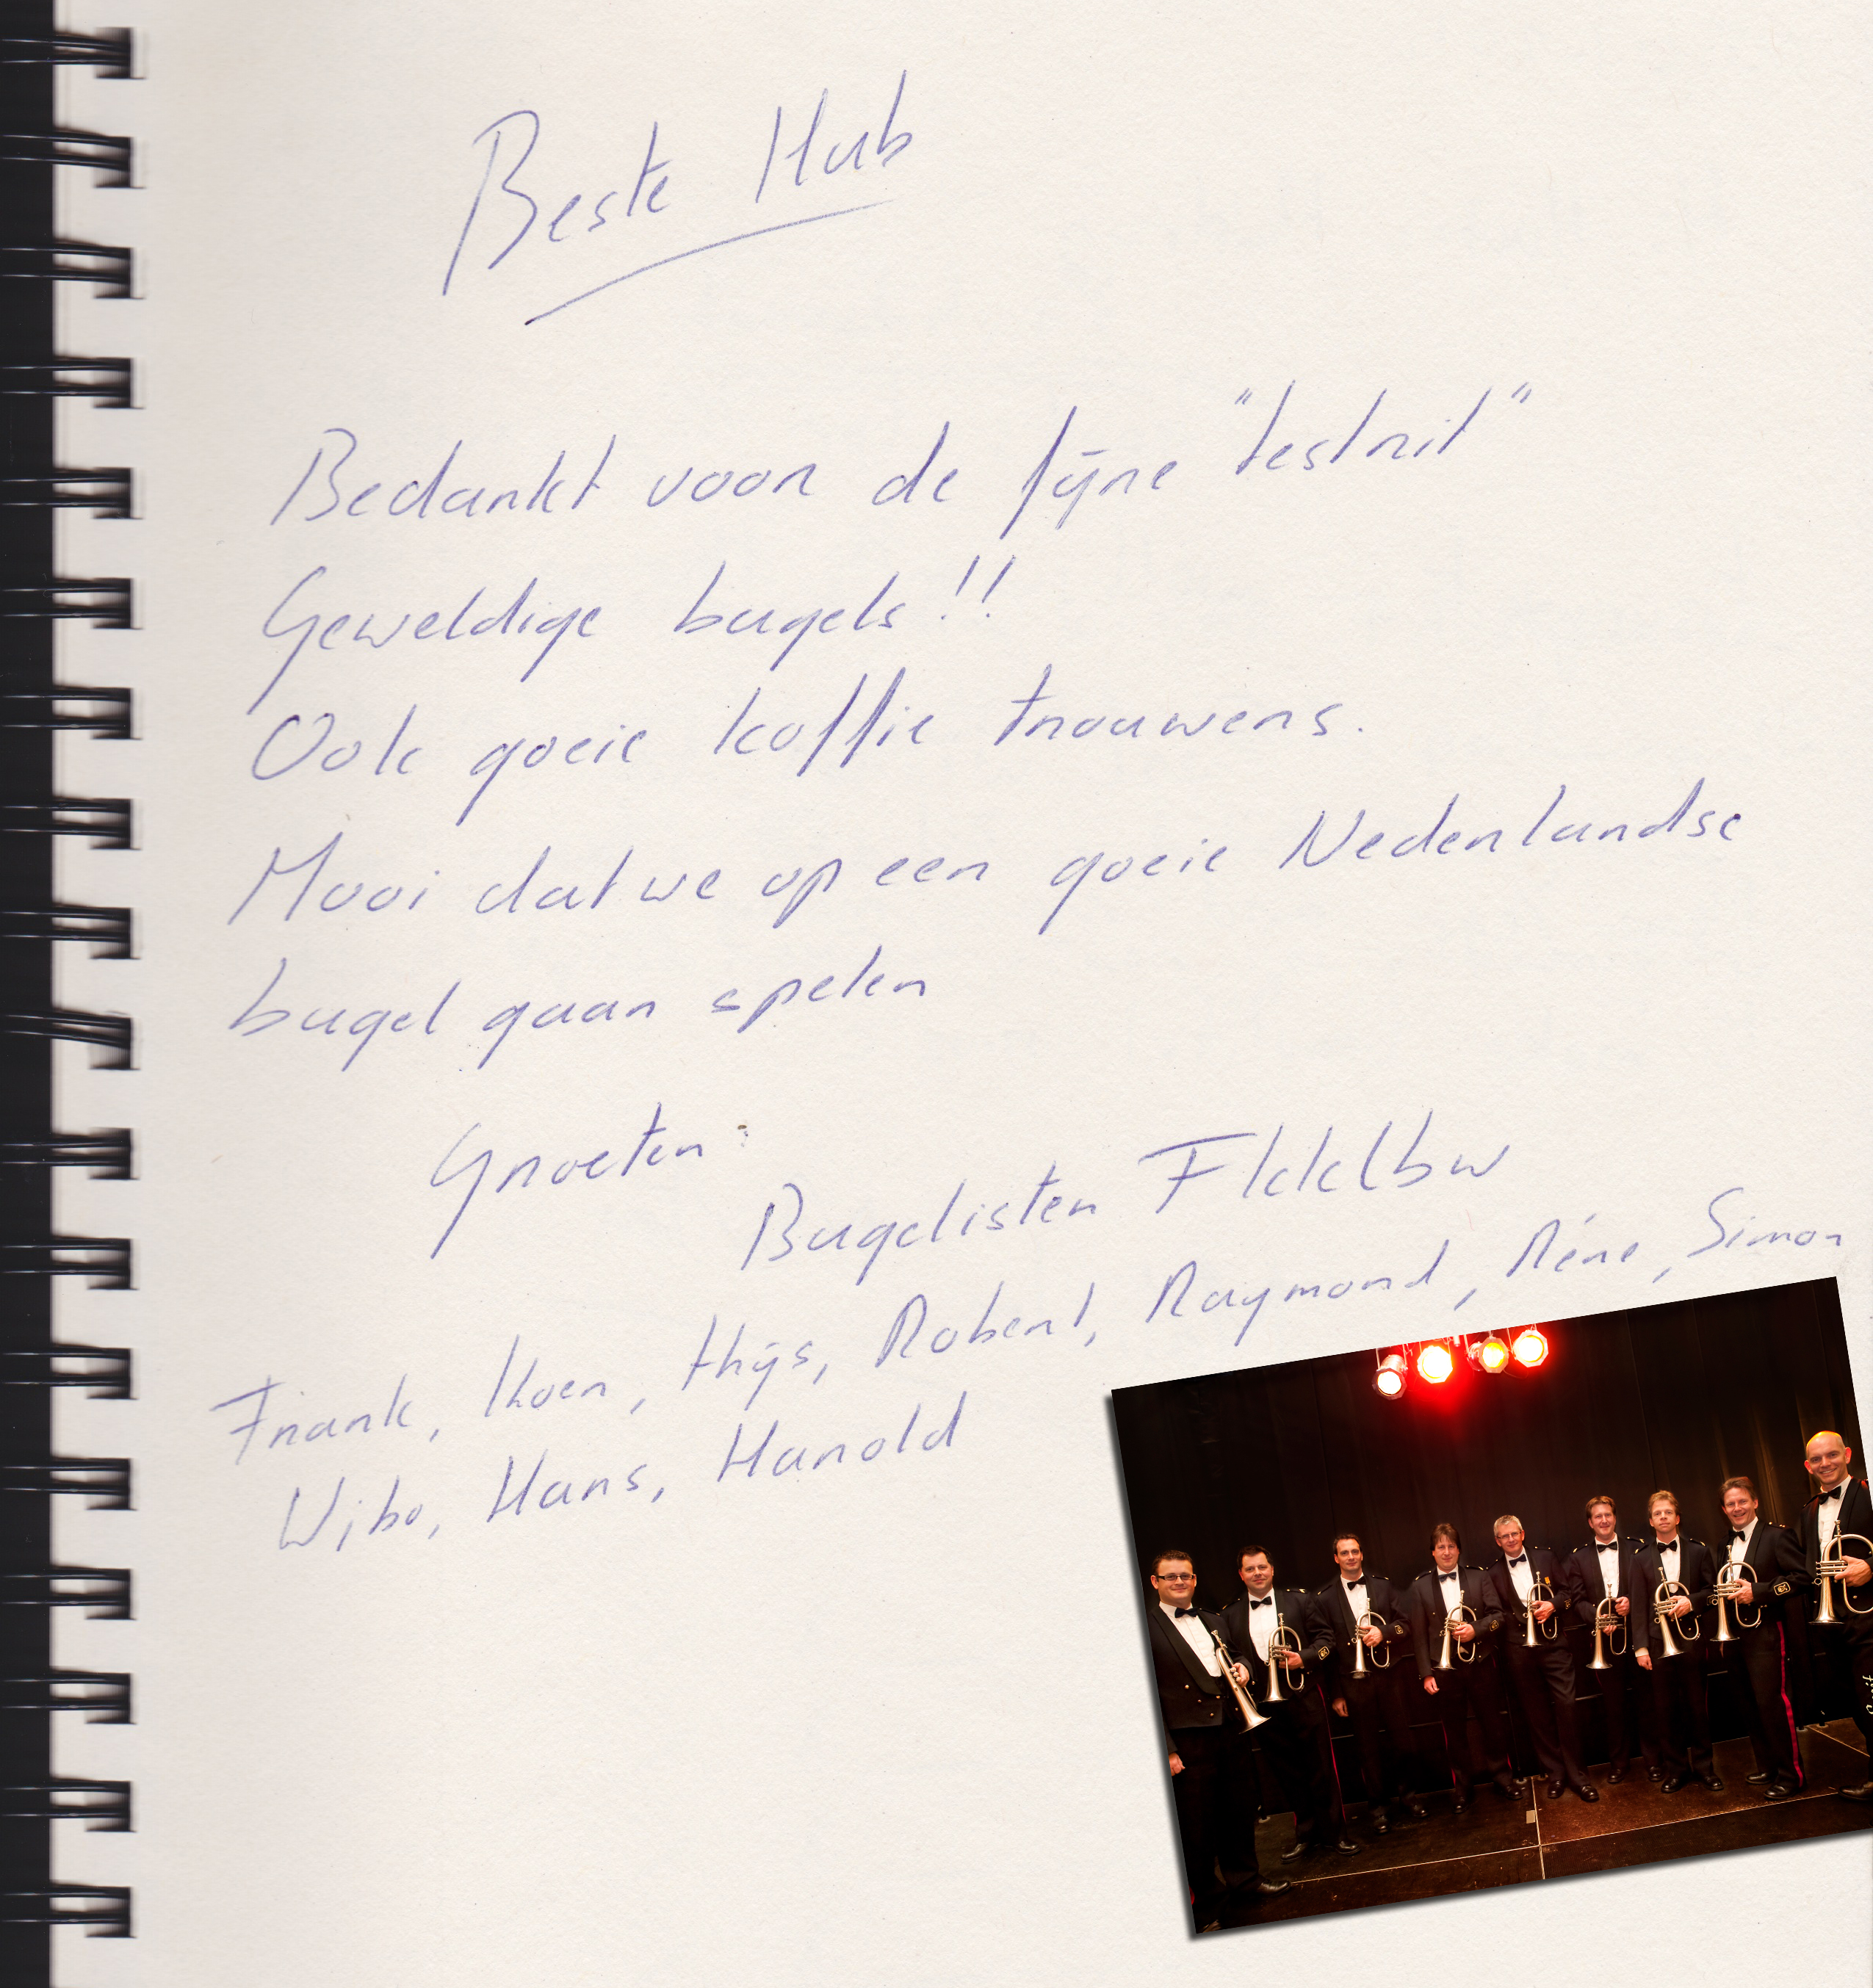 Beste Hub
Bedankt voor de fijne "testrit"
Geweldige bugels!!
Ook goeie koffie trouwens.
Mooi dat we op een goeie Nederlandse
bugel gaan spelen
Groeten:
Bugelisten Fkklbw
Frank, Koen, Thijs, Robert, Raymond, Réne, Simon
Wibo, Hans, Harold